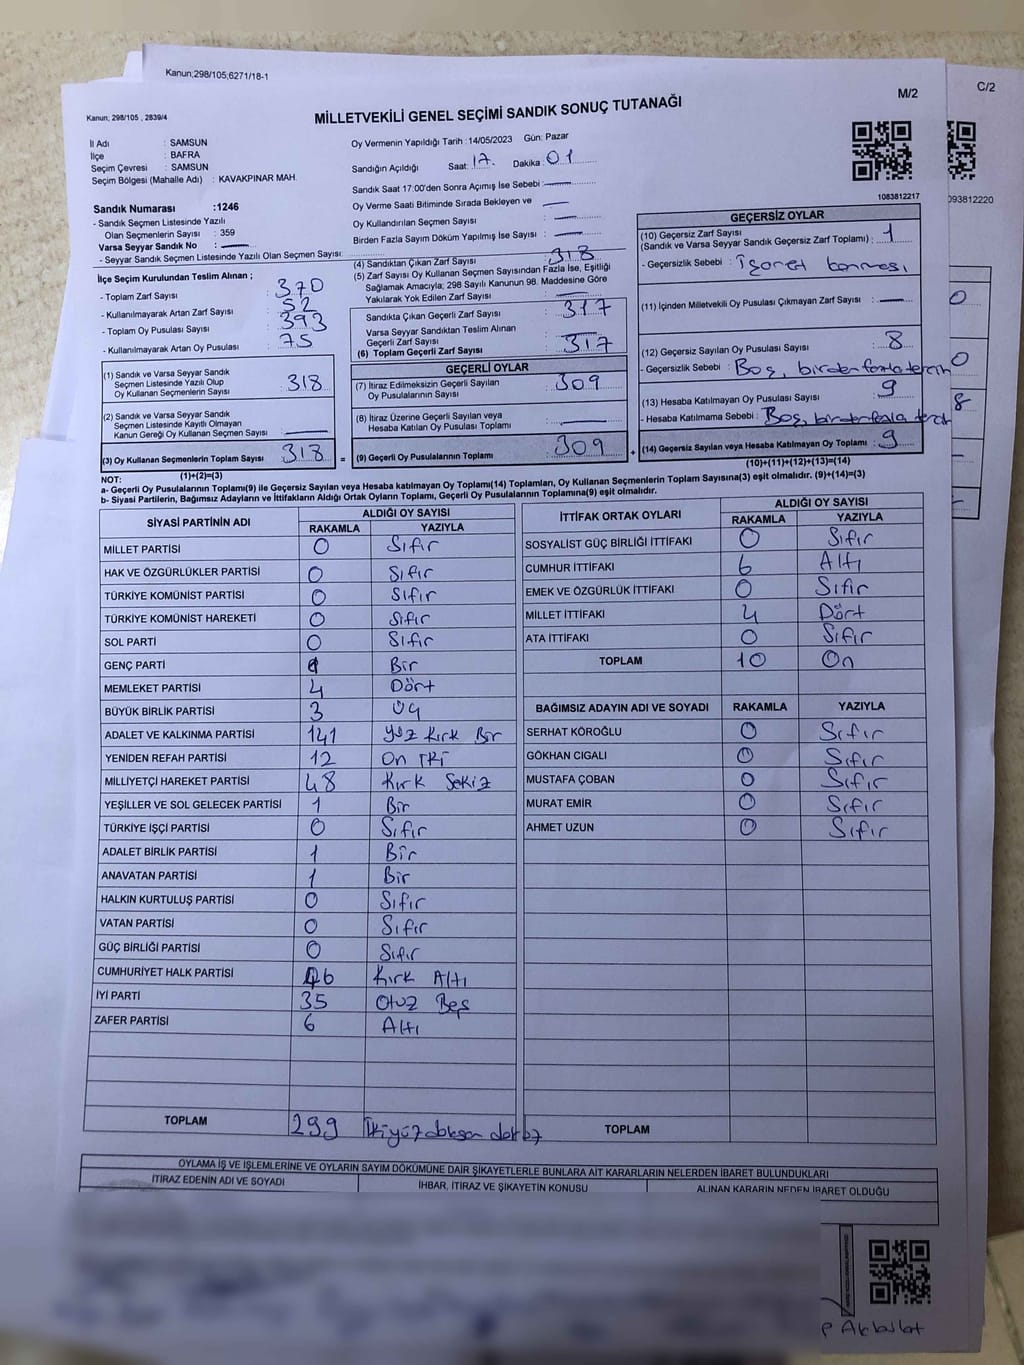 Kanun;298/105;6271/18-1
C/2
093812220
0
0
8
M/2
Kanun; 298/105 , 2839/4
MİLLETVEKİLİ GENEL SEÇİMİ SANDIK SONUÇ TUTANAĞI
1083812217
İl Adı : SAMSUN
İlçe : BAFRA
Seçim Çevresi : SAMSUN
Seçim Bölgesi (Mahalle Adı) : KAVAKPINAR MAH.
Sandık Numarası :1246
- Sandık Seçmen Listesinde Yazılı
Olan Seçmenlerin Sayısı : 359
Varsa Seyyar Sandık No :
- Seyyar Sandık Seçmen Listesinde Yazılı Olan Seçmen Sayısı:
Oy Vermenin Yapıldığı Tarih : 14/05/2023 Gün: Pazar
Sandığın Açıldığı Saat: 17 Dakika : 01
Sandık Saat 17:00'den Sonra Açımış İse Sebebi :
Oy Verme Saati Bitiminde Sırada Bekleyen ve
Oy Kullandırılan Seçmen Sayısı :
Birden Fazla Sayım Döküm Yapılmış İse Sayısı :
İlçe Seçim Kurulundan Teslim Alınan ;
- Toplam Zarf Sayısı : 370
- Kullanılmayarak Artan Zarf Sayısı : 52
- Toplam Oy Pusulası Sayısı : 393
- Kullanılmayarak Artan Oy Pusulası : 75
(1) Sandık ve Varsa Seyyar Sandık
Seçmen Listesinde Yazılı Olup
Oy Kullanan Seçmenlerin Sayısı : 318
(2) Sandık ve Varsa Seyyar Sandık
Seçmen Listesinde Kayıtlı Olmayan
Kanun Gereği Oy Kullanan Seçmen Sayısı :
(3) Oy Kullanan Seçmenlerin Toplam Sayısı : 318 =
(1)+(2)=(3)
(4) Sandıktan Çıkan Zarf Sayısı : 318
(5) Zarf Sayısı Oy Kullanan Seçmen Sayısından Fazla İse, Eşitliği
Sağlamak Amacıyla; 298 Sayılı Kanunun 98. Maddesine Göre
Yakılarak Yok Edilen Zarf Sayısı :
Sandıkta Çıkan Geçerli Zarf Sayısı : 317
Varsa Seyyar Sandıktan Teslim Alınan
Geçerli Zarf Sayısı :
(6) Toplam Geçerli Zarf Sayısı : 317
GEÇERLİ OYLAR
(7) İtiraz Edimeksizin Geçerli Sayılan
Oy Pusulalarının Sayısı : 309
(8) İtiraz Üzerine Geçerli Sayılan veya
Hesaba Katılan Oy Pusulası Toplamı :
(9) Geçerli Oy Pusulalarının Toplamı : 309 +
GEÇERSİZ OYLAR
(10) Geçersiz Zarf Sayısı
(Sandık ve Varsa Seyyar Sandık Geçersiz Zarf Toplamı) : 1
- Geçersizlik Sebebi :
(11) İçinden Milletvekili Oy Pusulası Çıkmayan Zarf Sayısı :
(12) Geçersiz Sayılan Oy Pusulası Sayısı : 8
- Geçersizlik Sebebi : Boş, birden fazla tercih
(13) Hesaba Katılmayan Oy Pusulası Sayısı : 9
- Hesaba Katılmama Sebebi : Boş, birden fazla tercih
(14) Geçersiz Sayılan veya Hesaba Katılmayan Oy Toplamı : 9
(10)+(11)+(12)+(13)=(14)
NOT:
a- Geçerli Oy Pusulalarının Toplamı(9) ile Geçersiz Sayılan veya Hesaba katılmayan Oy Toplamı(14) Toplamları, Oy Kullanan Seçmenlerin Toplam Sayısına(3) eşit olmalıdır. (9)+(14)=(3)
b- Siyasi Partilerin, Bağımsız Adayların ve İttifakların Aldığı Ortak Oyların Toplamı, Geçerli Oy Pusulalarının Toplamına(9) eşit olmalıdır.
SİYASİ PARTİNİN ADI ALDIĞI OY SAYISI
RAKAMLA YAZIYLA
MİLLET PARTİSİ 0 Sıfır
HAK VE ÖZGÜRLÜKLER PARTİSİ 0 Sıfır
TÜRKİYE KOMÜNİST PARTİSİ 0 Sıfır
TÜRKİYE KOMÜNİST HAREKETİ 0 Sıfır
SOL PARTİ 0 Sıfır
GENÇ PARTİ 1 Bir
MEMLEKET PARTİSİ 4 Dört
BÜYÜK BİRLİK PARTİSİ 3 Üç
ADALET VE KALKINMA PARTİSİ 141 Yüz Kırk Bir
YENİDEN REFAH PARTİSİ 12 On İki
MİLLİYETÇİ HAREKET PARTİSİ 48 Kırk Sekiz
YEŞİLLER VE SOL GELECEK PARTİSİ 1 Bir
TÜRKİYE İŞÇİ PARTİSİ 0 Sıfır
ADALET BİRLİK PARTİSİ 1 Bir
ANAVATAN PARTİSİ 1 Bir
HALKIN KURTULUŞ PARTİSİ 0 Sıfır
VATAN PARTİSİ 0 Sıfır
GÜÇ BİRLİĞİ PARTİSİ 0 Sıfır
CUMHURİYET HALK PARTİSİ 46 Kırk Altı
İYİ PARTİ 35 Otuz Beş
ZAFER PARTİSİ 6 Altı
TOPLAM 299 İkiyüz doksan dokuz
İTTİFAK ORTAK OYLARI ALDIĞI OY SAYISI
RAKAMLA YAZIYLA
SOSYALİST GÜÇ BİRLİĞİ İTTİFAKI 0 Sıfır
CUMHUR İTTİFAKI 6 Altı
EMEK VE ÖZGÜRLÜK İTTİFAKI 0 Sıfır
MİLLET İTTİFAKI 4 Dört
ATA İTTİFAKI 0 Sıfır
TOPLAM 10 On
BAĞIMSIZ ADAYIN ADI VE SOYADI RAKAMLA YAZIYLA
SERHAT KÖROĞLU 0 Sıfır
GÖKHAN CIGALI 0 Sıfır
MUSTAFA ÇOBAN 0 Sıfır
MURAT EMİR 0 Sıfır
AHMET UZUN 0 Sıfır
TOPLAM
OYLAMA İŞ VE İŞLEMLERİNE VE OYLARIN SAYIM DÖKÜMÜNE DAİR ŞİKAYETLERLE BUNLARA AİT KARARLARIN NELERDEN İBARET BULUNDUKLARI
İTİRAZ EDENİN ADI VE SOYADI İHBAR, İTİRAZ VE ŞİKAYETİN KONUSU ALINAN KARARIN NEDEN İBARET OLDUĞU